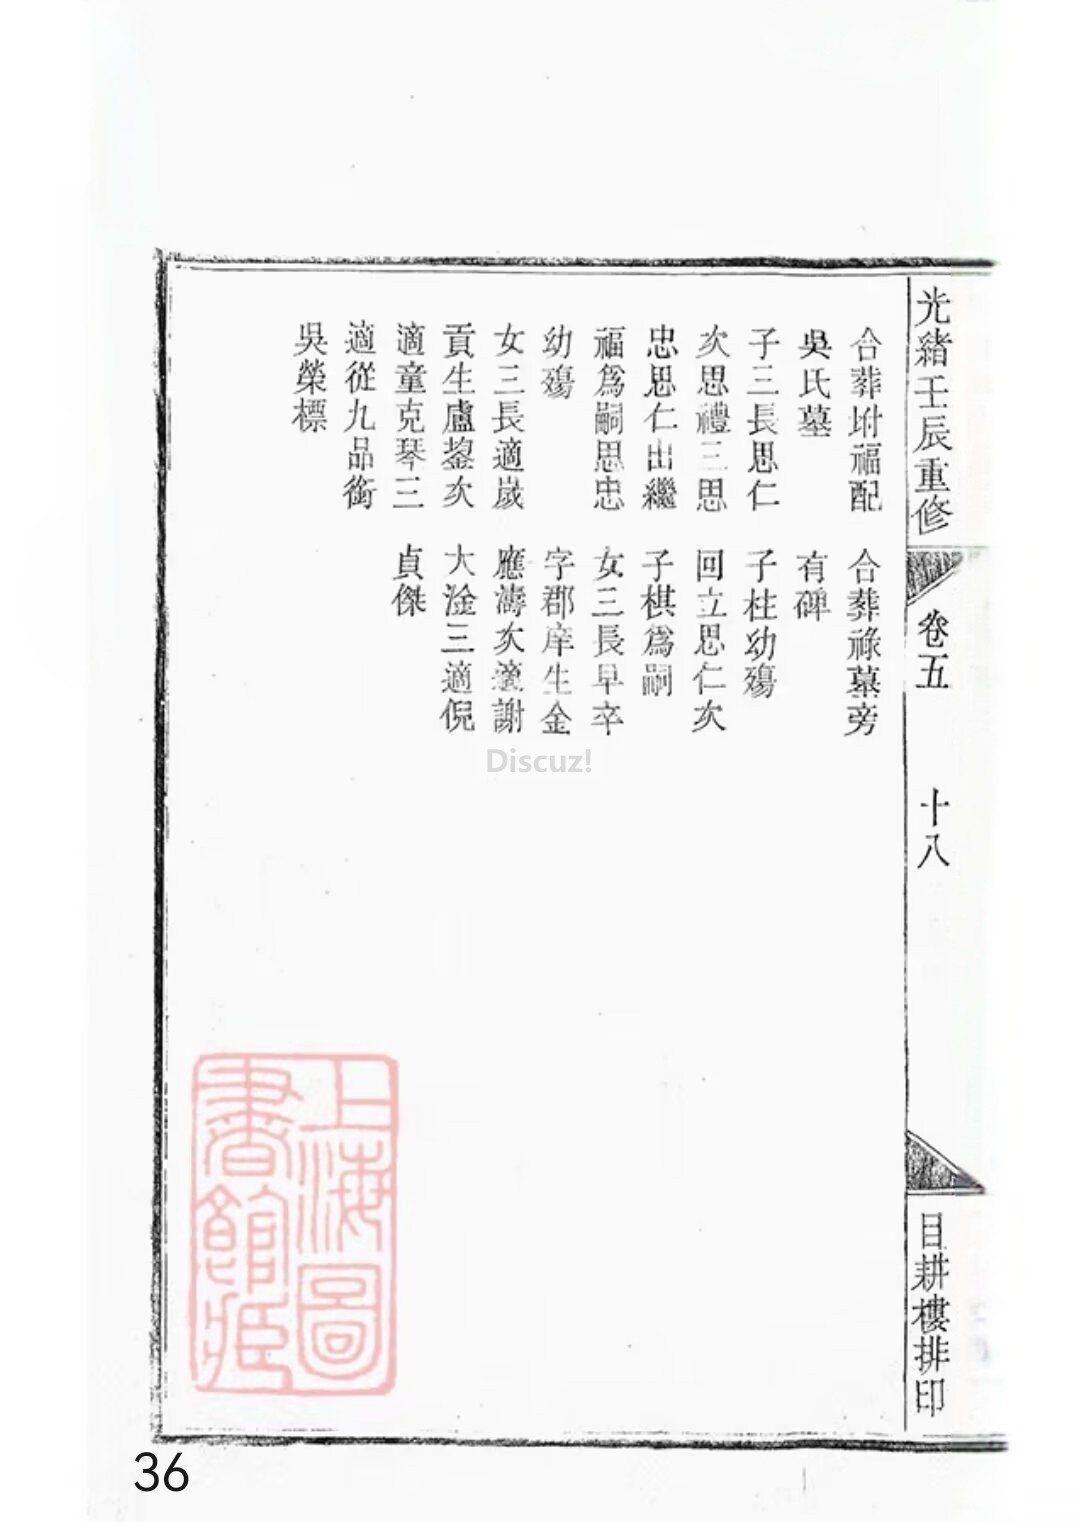 光緒壬辰重修
卷五
十八
目耕樓排印
合葬坿福配
吳氏墓
子三長思仁
次思禮三思
忠思仁出繼
福爲嗣思忠
幼殤
女三長適歲
貢生盧鋆次
適童克琴三
適從九品銜
吳榮標
合葬祿墓旁
有碑
子柱幼殤
回立思仁次
子棋爲嗣
女三長早卒
字郡庠生金
應濤次適謝
大淦三適倪
貞傑
Discuz!
上海圖
書館藏
36